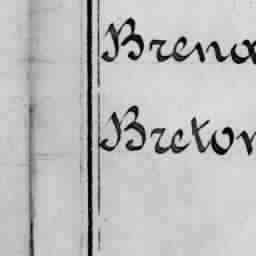 Brena
Breton